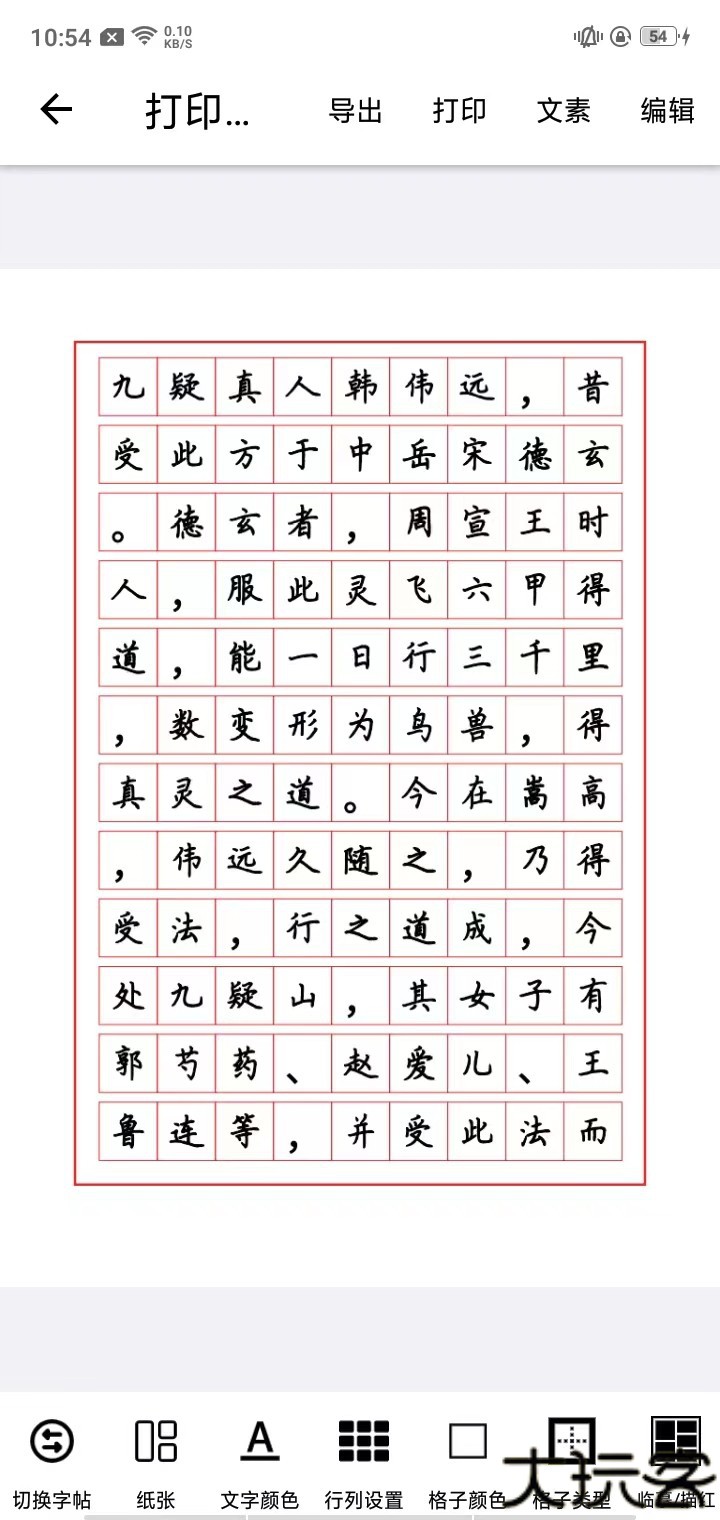 10:54 0.10 KB/S 54
打印... 导出 打印 文素 编辑
九疑真人韩伟远，昔
受此方于中岳宋德玄
。德玄者，周宣王时
人，服此灵飞六甲得
道，能一日行三千里
，数变形为鸟兽，得
真灵之道。今在嵩高
，伟远久随之，乃得
受法，行之道成，今
处九疑山，其女子有
郭芍药、赵爱儿、王
鲁连等，并受此法而
切换字帖 纸张 文字颜色 行列设置 格子颜色 格子类型 临摹/描红
大玩客